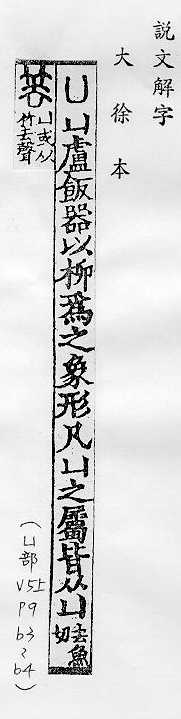 說文解字
大徐本
凵 凵盧飯器以柳爲之象形凡凵之屬皆从凵
去魚
切
𥬔
凵或从
竹去聲
(凵部
V5上
P9
b3
~
b4)